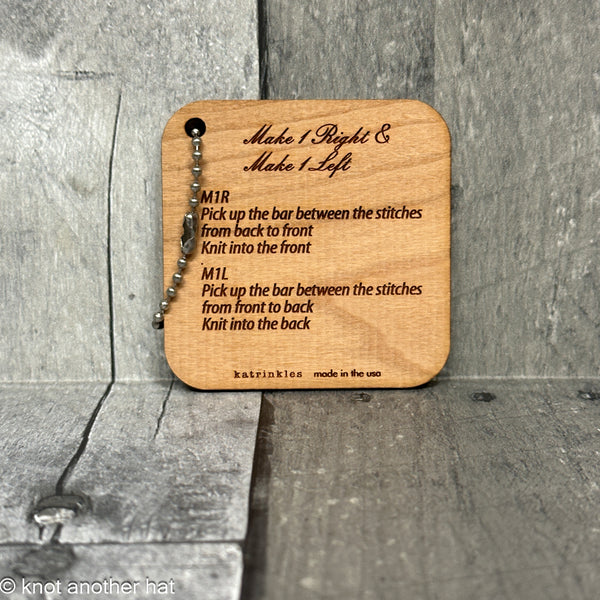 Make 1 Right &
Make 1 Left
M1R
Pick up the bar between the stitches
from back to front
Knit into the front
M1L
Pick up the bar between the stitches
from front to back
Knit into the back
katrinkles made in the usa
© knot another hat